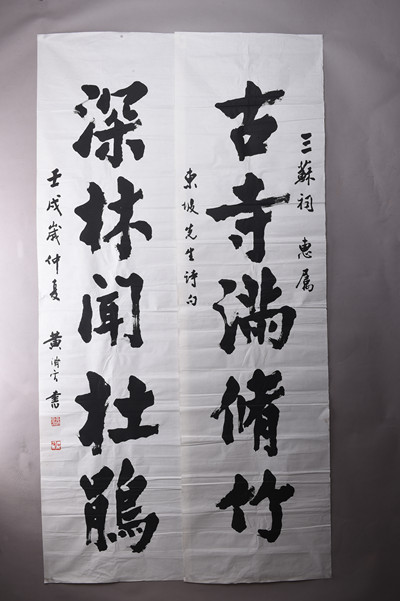 三蘇祠 惠属
古寺满脩竹
東坡先生詩句
深林聞杜鵑
壬戌歲仲夏 黄济云書